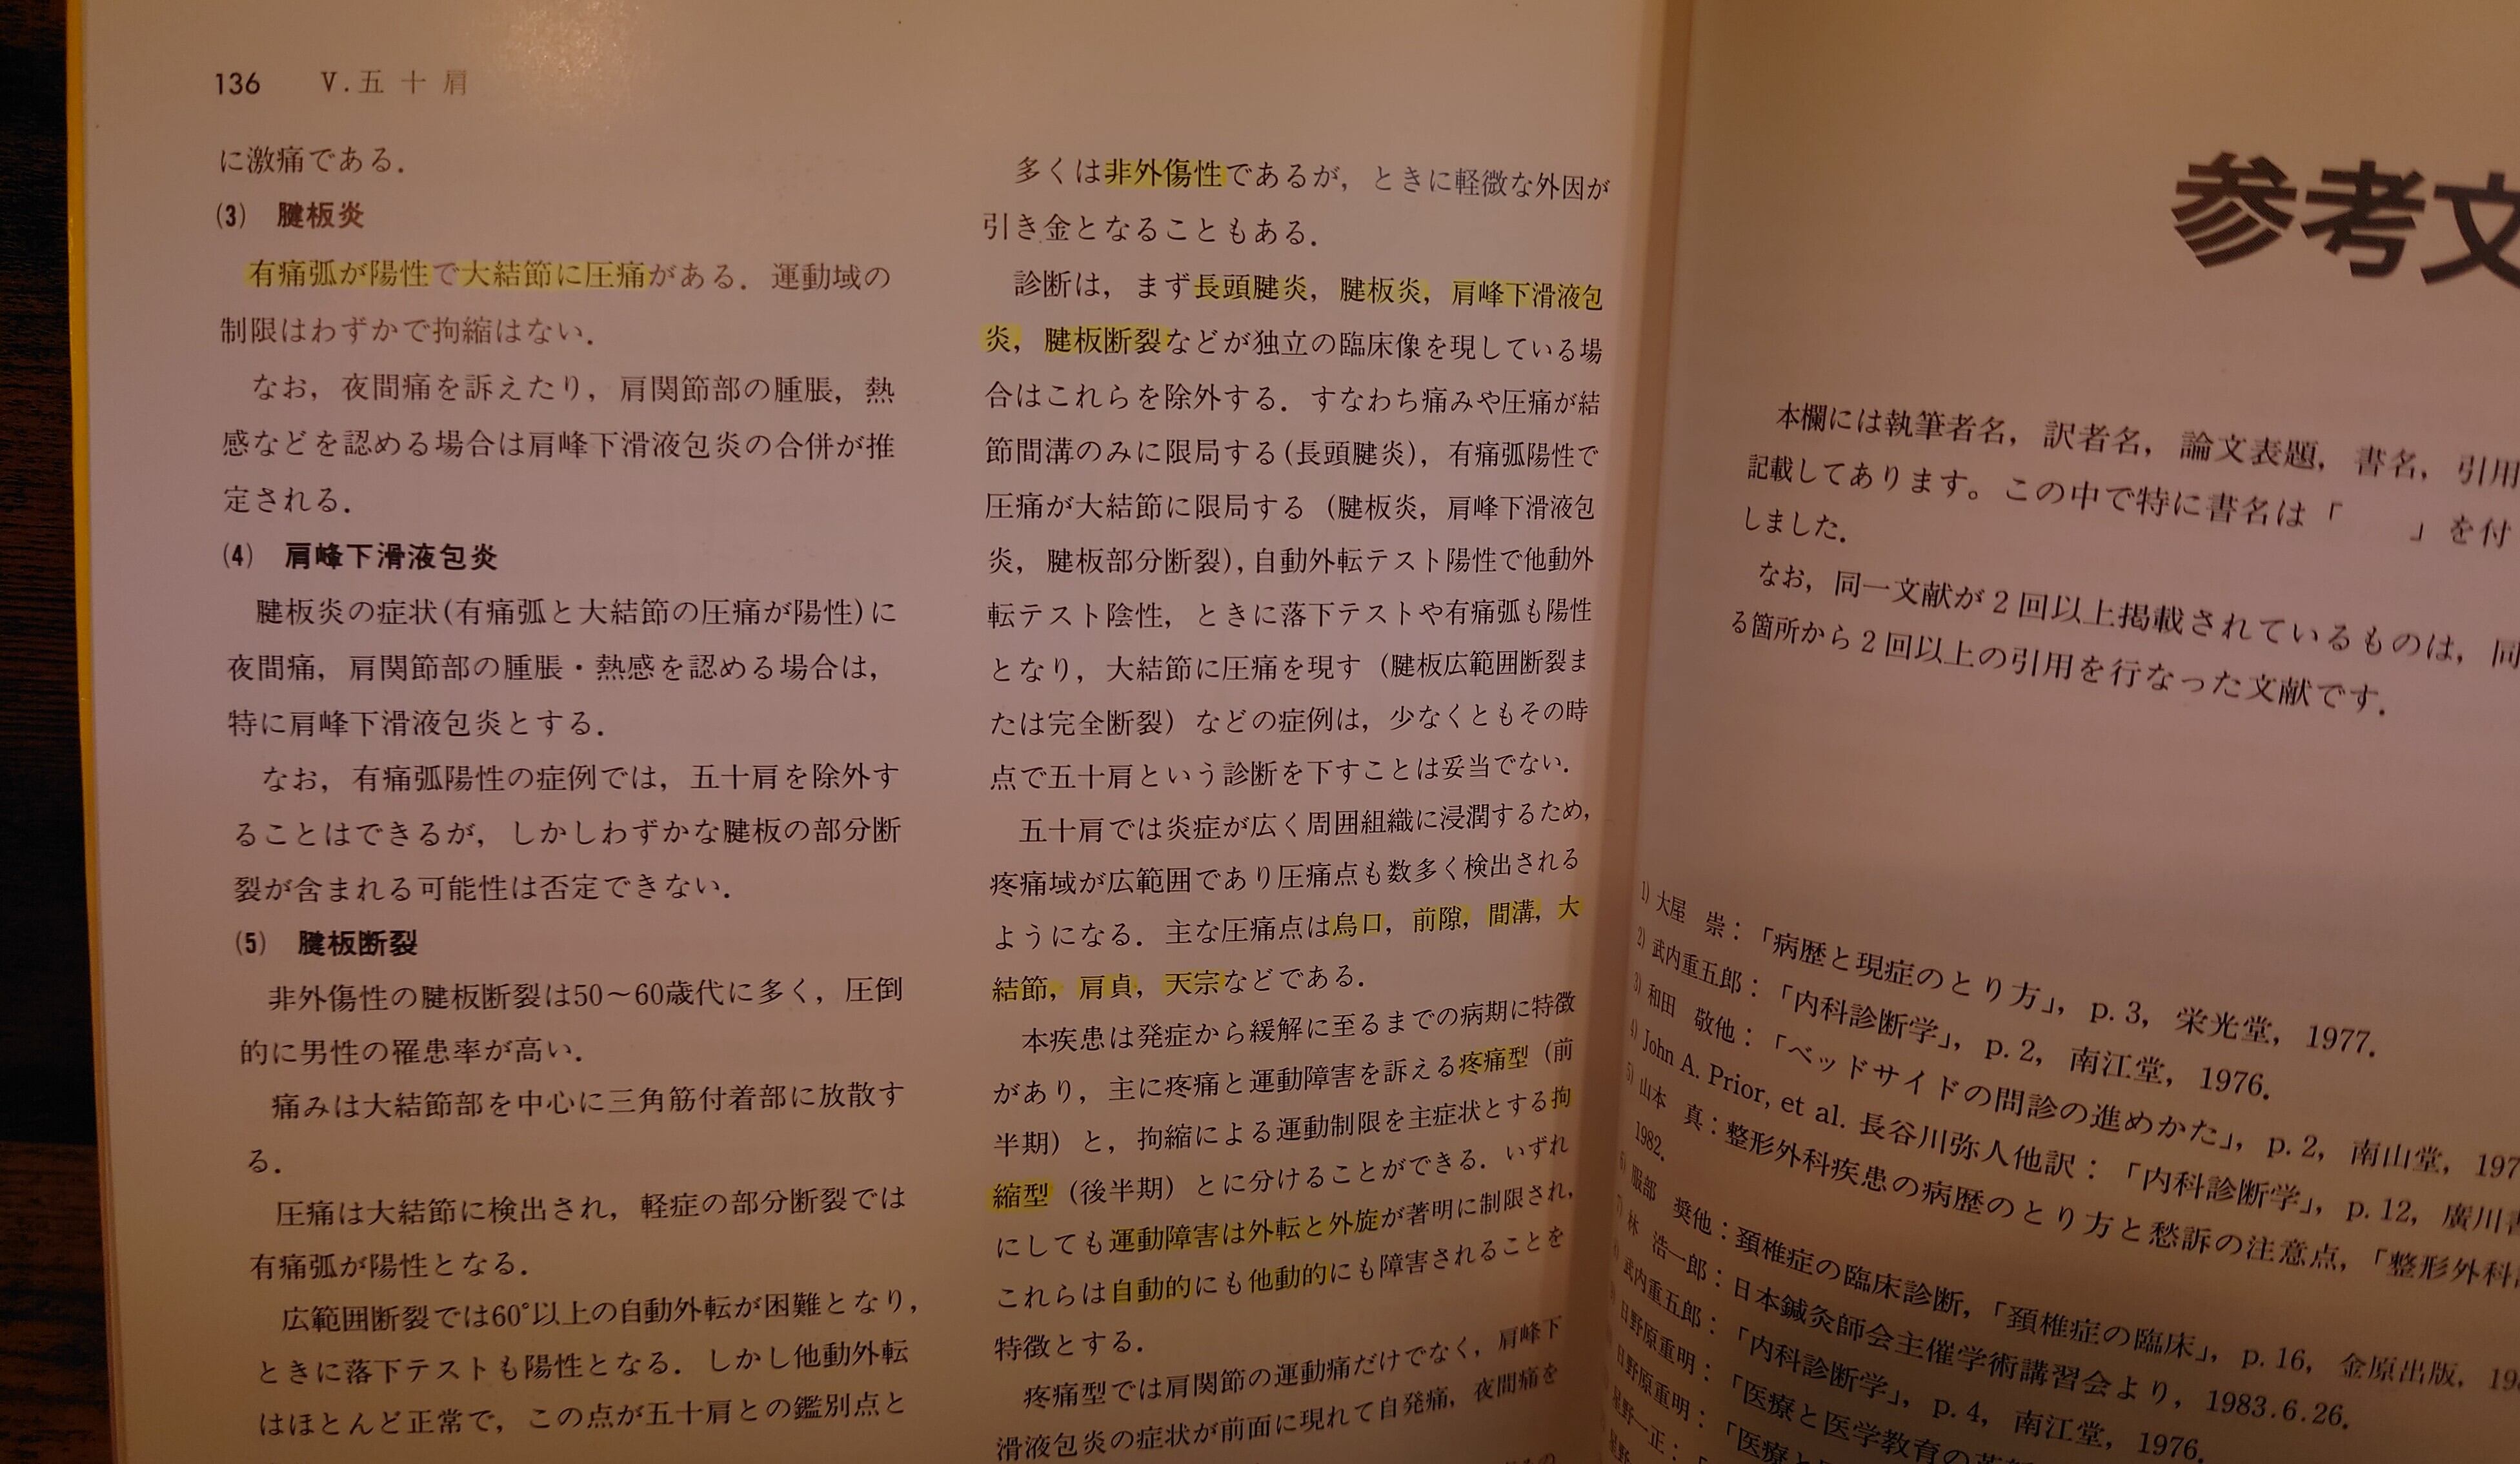 136 V.五十肩
に激痛である.
(3) 腱板炎
有痛弧が陽性で大結節に圧痛がある. 運動域の
制限はわずかで拘縮はない.
なお, 夜間痛を訴えたり, 肩関節部の腫脹, 熱
感などを認める場合は肩峰下滑液包炎の合併が推
定される.
(4) 肩峰下滑液包炎
腱板炎の症状(有痛弧と大結節の圧痛が陽性)に
夜間痛, 肩関節部の腫脹・熱感を認める場合は,
特に肩峰下滑液包炎とする.
なお, 有痛弧陽性の症例では, 五十肩を除外す
ることはできるが, しかしわずかな腱板の部分断
裂が含まれる可能性は否定できない.
(5) 腱板断裂
非外傷性の腱板断裂は50〜60歳代に多く, 圧倒
的に男性の罹患率が高い.
痛みは大結節部を中心に三角筋付着部に放散す
る.
圧痛は大結節に検出され, 軽症の部分断裂では
有痛弧が陽性となる.
広範囲断裂では60°以上の自動外転が困難となり,
ときに落下テストも陽性となる. しかし他動外転
はほとんど正常で, この点が五十肩との鑑別点と
多くは非外傷性であるが, ときに軽微な外因が
引き金となることもある.
診断は, まず長頭腱炎, 腱板炎, 肩峰下滑液包
炎, 腱板断裂などが独立の臨床像を現している場
合はこれらを除外する. すなわち痛みや圧痛が結
節間溝のみに限局する(長頭腱炎), 有痛弧陽性で
圧痛が大結節に限局する (腱板炎, 肩峰下滑液包
炎, 腱板部分断裂), 自動外転テスト陽性で他動外
転テスト陰性, ときに落下テストや有痛弧も陽性
となり, 大結節に圧痛を現す (腱板広範囲断裂ま
たは完全断裂) などの症例は, 少なくともその時
点で五十肩という診断を下すことは妥当でない.
五十肩では炎症が広く周囲組織に浸潤するため,
疼痛域が広範囲であり圧痛点も数多く検出される
ようになる. 主な圧痛点は烏口, 前隙, 間溝, 大
結節, 肩貞, 天宗などである.
本疾患は発症から緩解に至るまでの病期に特徴
があり, 主に疼痛と運動障害を訴える疼痛型 (前
半期) と, 拘縮による運動制限を主症状とする拘
縮型 (後半期) とに分けることができる. いずれ
にしても運動障害は外転と外旋が著明に制限され,
これらは自動的にも他動的にも障害されることを
特徴とする.
疼痛型では肩関節の運動痛だけでなく, 肩峰下
滑液包炎の症状が前面に現れて自発痛, 夜間痛を
参考文
本欄には執筆者名, 訳者名, 論文表題, 書名, 引用
記載してあります。この中で特に書名は「　　」を付
しました.
なお, 同一文献が2回以上掲載されているものは, 同
る箇所から2回以上の引用を行なった文献です.
1) 大屋 崇:「病歴と現症のとり方」, p.3, 栄光堂, 1977.
2) 武内重五郎:「内科診断学」, p.2, 南江堂, 1976.
3) 和田 敬他:「ベッドサイドの問診の進めかた」, p.2, 南山堂, 197
4) John A. Prior, et al. 長谷川弥人他訳:「内科診断学」, p.12, 廣川書
5) 山本 真:整形外科疾患の病歴のとり方と愁訴の注意点,「整形外科
1982.
6) 服部 奨他:頚椎症の臨床診断,「頚椎症の臨床」, p.16, 金原出版, 19
7) 林 浩一郎:日本鍼灸師会主催学術講習会より, 1983.6.26.
武内重五郎:「内科診断学」, p.4, 南江堂, 1976.
日野原重明:「医療と医学教育の
日野原重明:「医療と
星野一正:「
星野